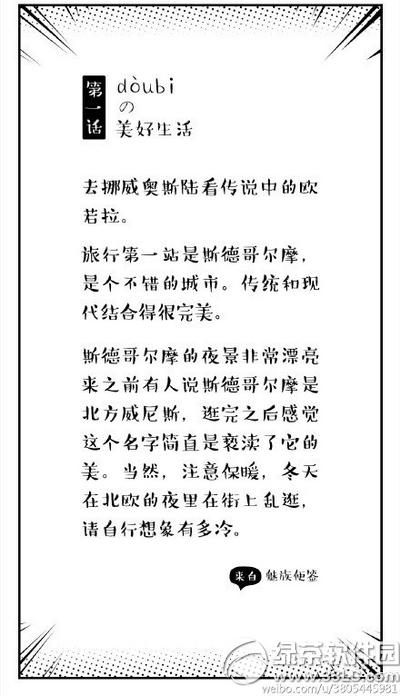 第一话
dòubi
の
美好生活
去挪威奥斯陆看传说中的欧
若拉。
旅行第一站是斯德哥尔摩，
是个不错的城市。传统和现
代结合得很完美。
斯德哥尔摩的夜景非常漂亮
来之前有人说斯德哥尔摩是
北方威尼斯，逛完之后感觉
这个名字简直是亵渎了它的
美。当然，注意保暖，冬天
在北欧的夜里在街上乱逛，
请自行想象有多冷。
来自 魅族便签
绿茶软件园
www.33LC.com
weibo.com/u/3805445981